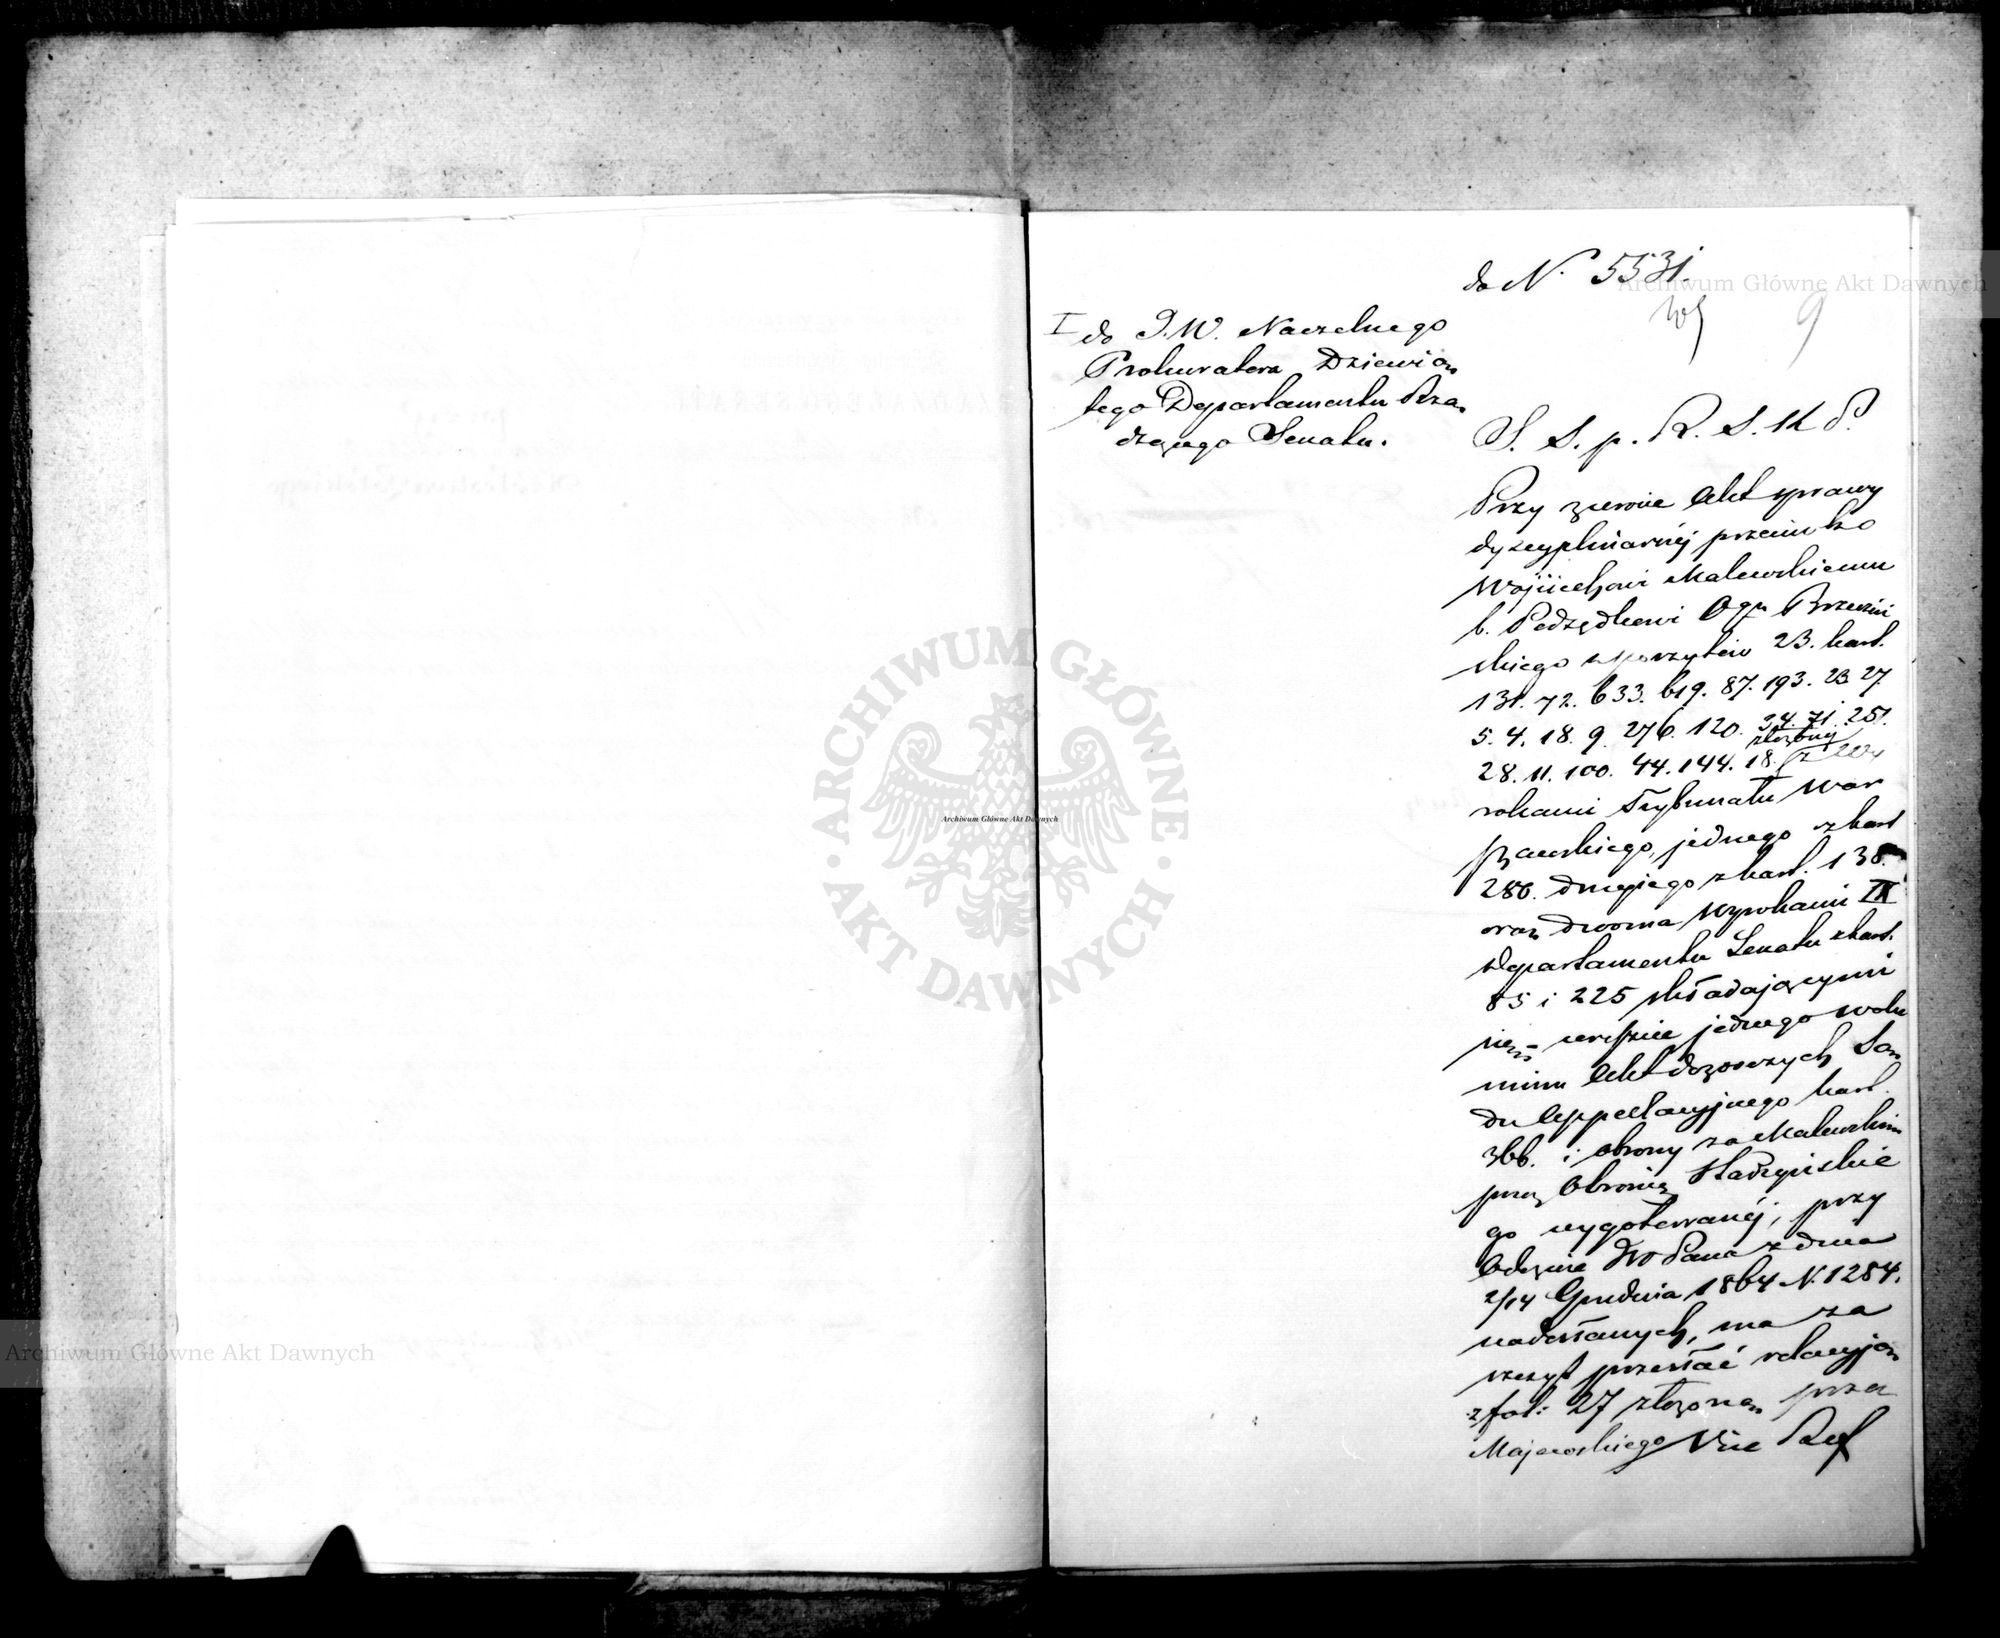 do N. 5531.
9
I do J.W. Naczelnego
Prokuratora Dziewią
tego Departamentu Rzą
dzącego Senatu.
S. S. p. R. S. K P.
Przy zwrocie Akt sprawy
dyscyplinarnéj przeciwko
Wojciechowi Malewskiemu
b. Podsędkowi Ogu Brzeziń
skiego z poszytów 23. kart.
131. 72. 633. 619. 87. 193. 23 27.
5. 4. 18. 9. 276. 120. 34. 71. 251.
28. 11. 100. 44. 144. 18. złożony z Wy
rokami Trybunału War
szawskiego, jednego z kart
286. drugiego z kart. 138.
oraz dwoma Wyrokami IX
Departamentu Senatu z kart.
85 i 225 składającymi
się, jednego wolu
minu Akt dozorczych Są
du Appellacyjnego kart.
366. i obrony za Malewskim
przez Obrońcę
go wygotowanéj, przy
Odezwie JW Pana z dnia
2/14 Grudnia 1864 N. 1284.
nadesłanych, ma za
szczyt przesłać relacyją
z fol: 27 złożoną przez
Majewskiego Vice Ref
Archiwum Główne Akt Dawnych
Archiwum Główne Akt Dawnych
Archiwum Główne Akt Dawnych
ARCHIWUM GŁÓWNE
AKT DAWNYCH